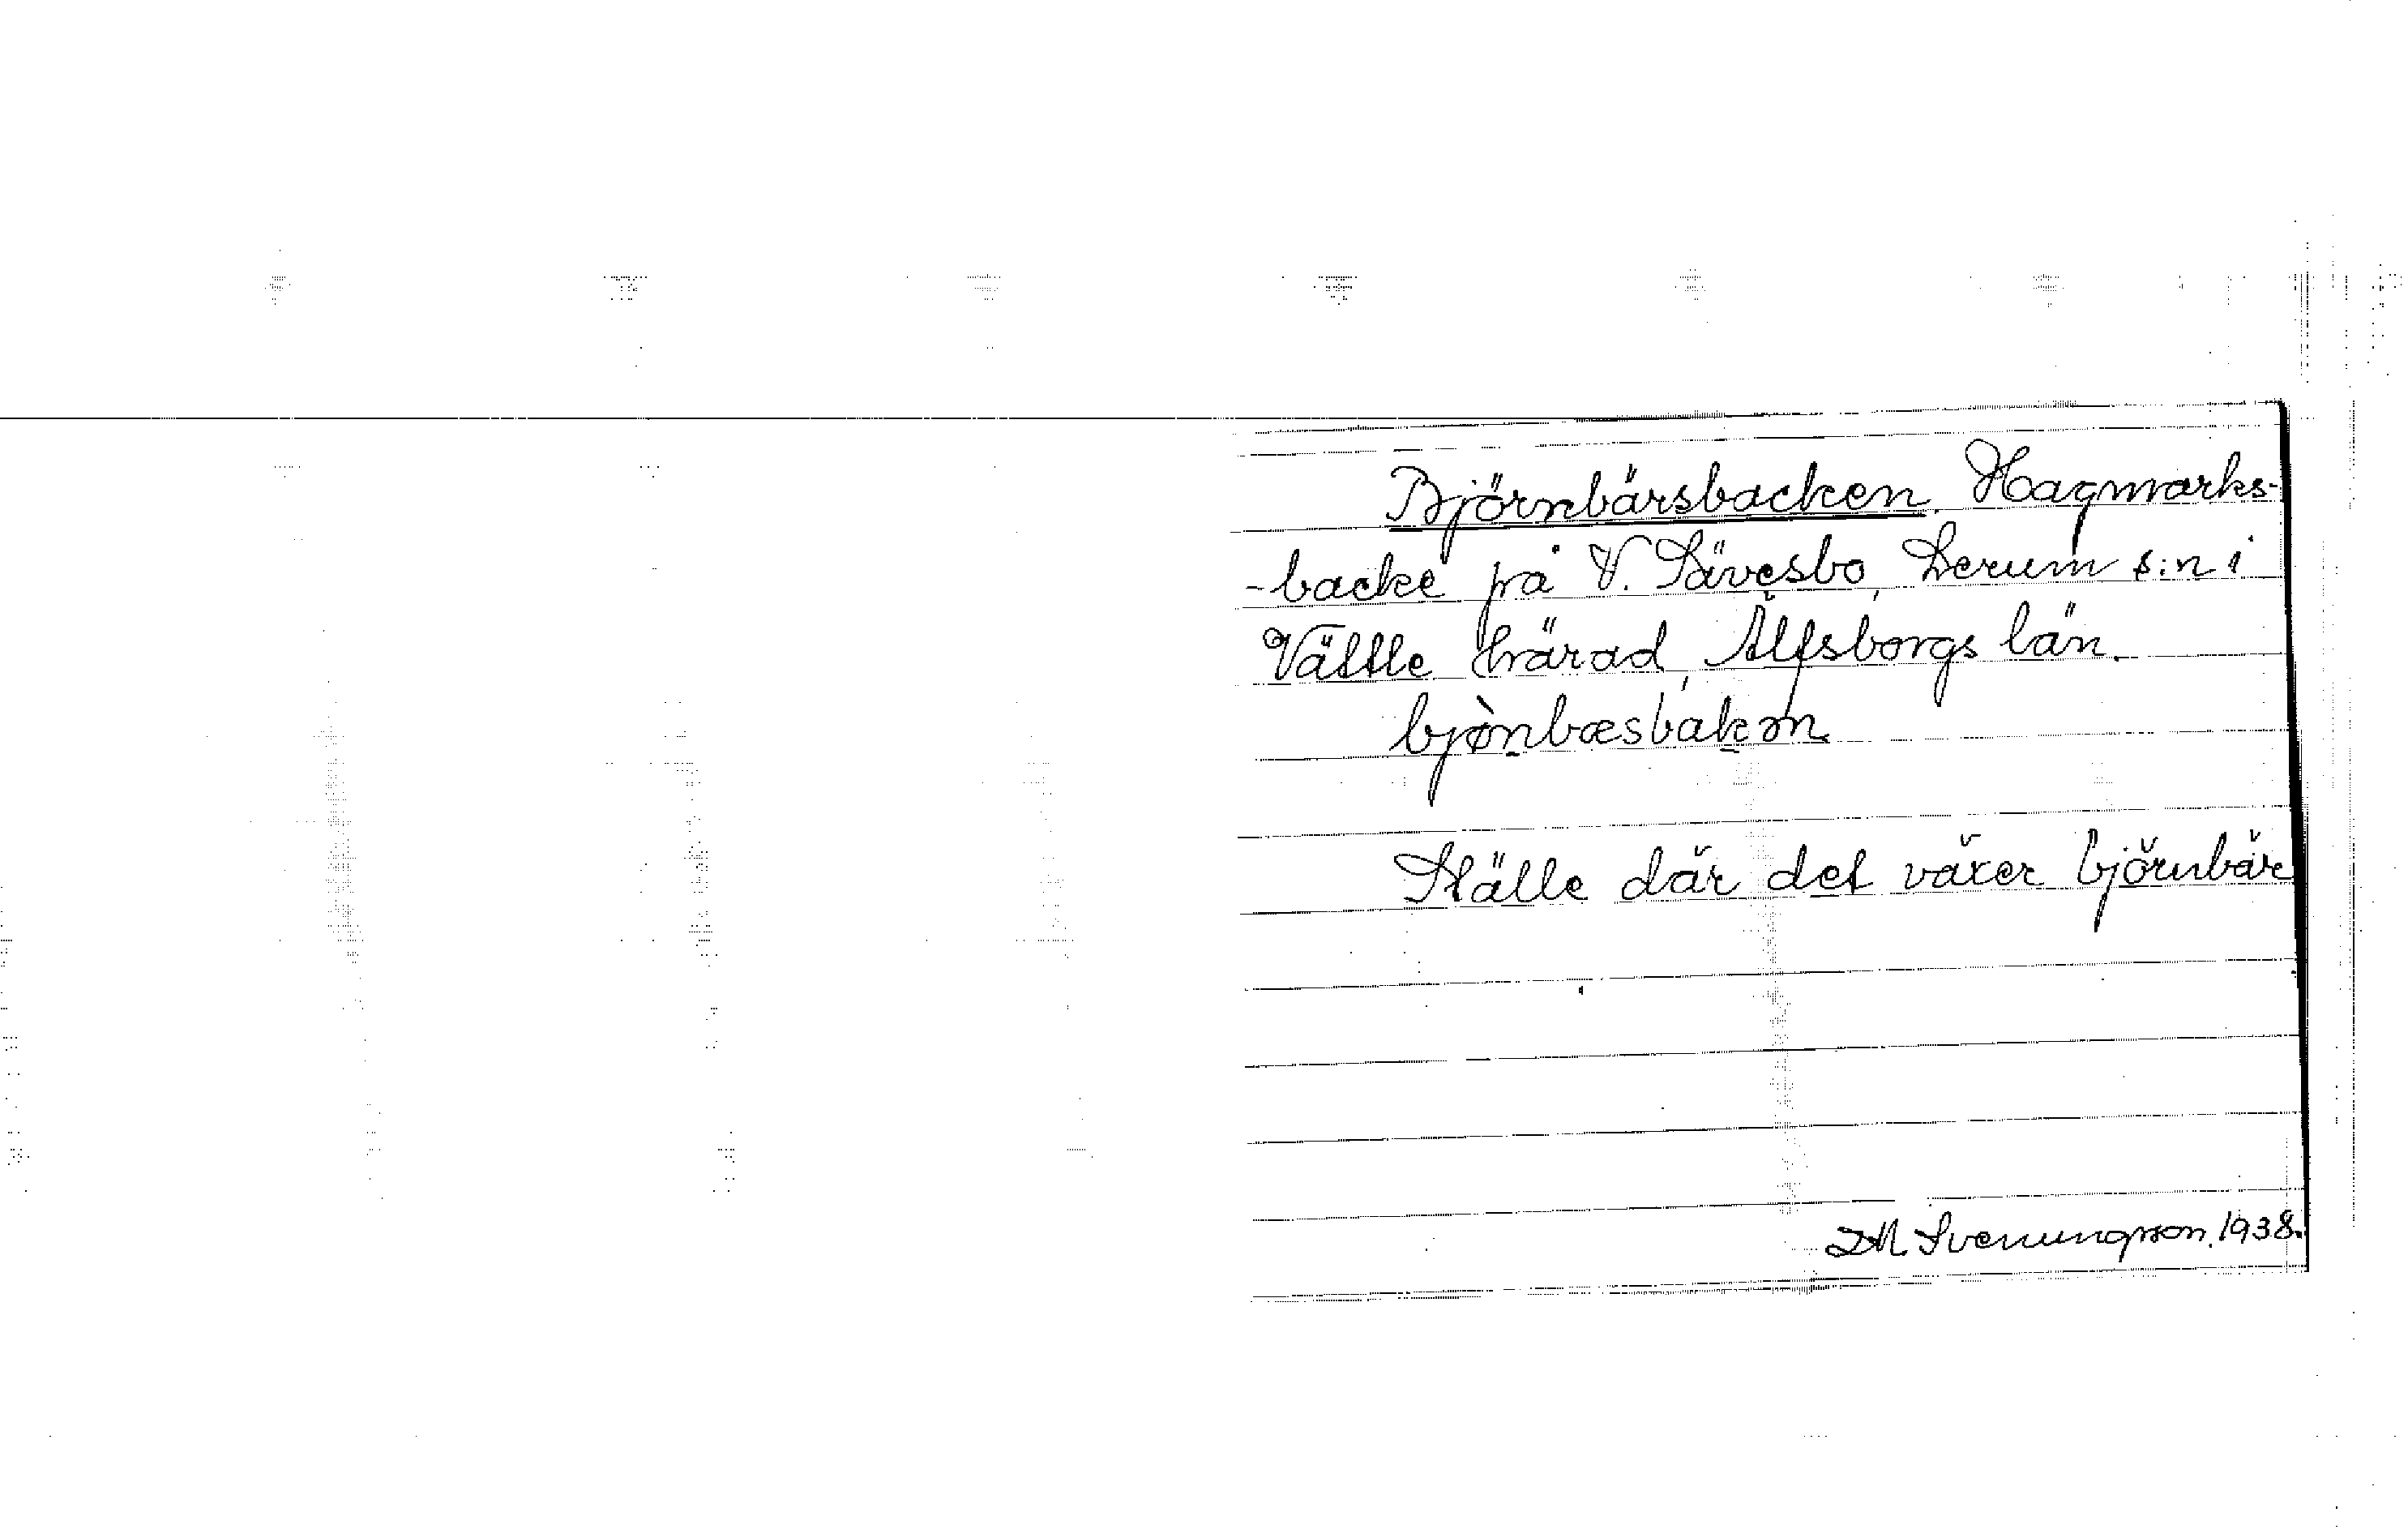 Björnbärsbacken. Hagmarks-
-backe på V. Sävesbo, Lerum s:n i
Vättle härad, Älfsborgs län.
bjònbæsbakən
Ställe där det växer björnbär
IM Svenungsson. 1938.